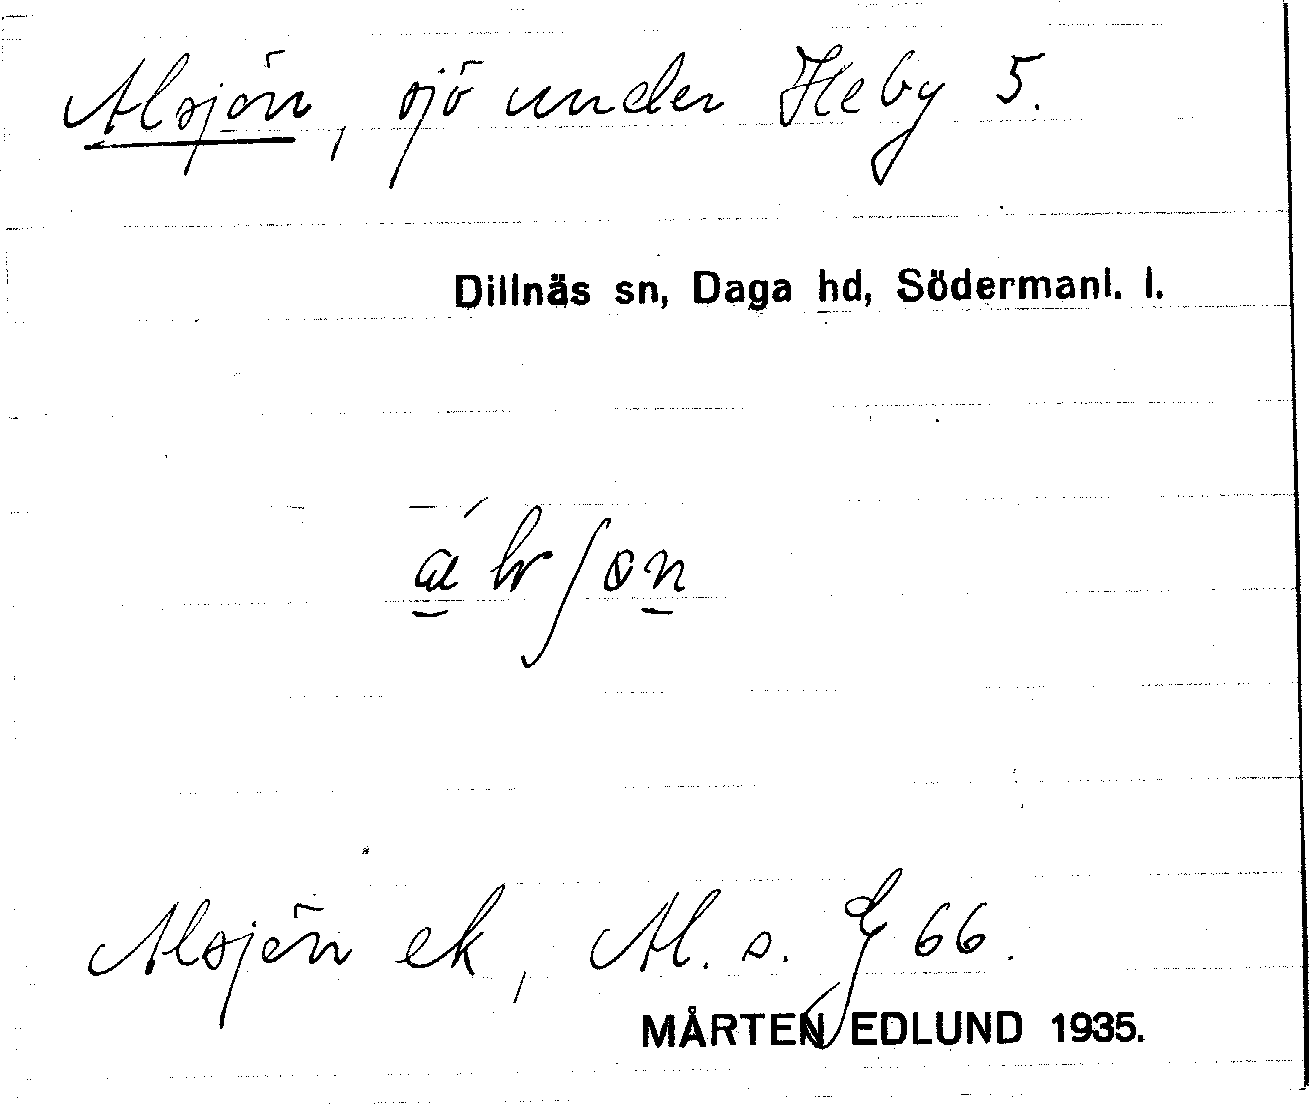 Alsjön, sjö under Heby 5.
Dillnäs sn, Daga hd, Södermanl. l.
Alsjön ek, Al. s. Ef 66.
MÅRTEN EDLUND 1935.